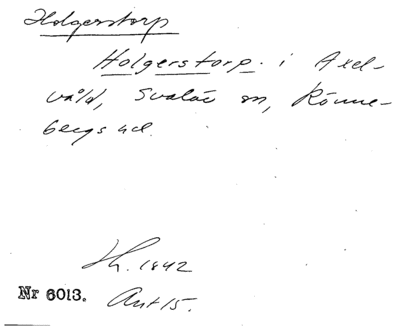 Holgerstorp
Holgerstorp i Axel-
vold, Svalöv sn, Rönne-
bergs hd.
Lh. 1842
Nr 6013. Ant 15.